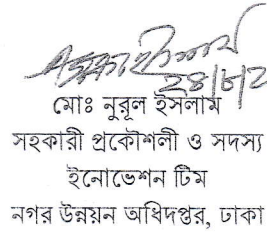 ২৪/৮/২
মোঃ নুরূল ইসলাম
সহকারী প্রকৌশলী ও সদস্য
ইনোভেশন টিম
নগর উন্নয়ন অধিদপ্তর, ঢাকা